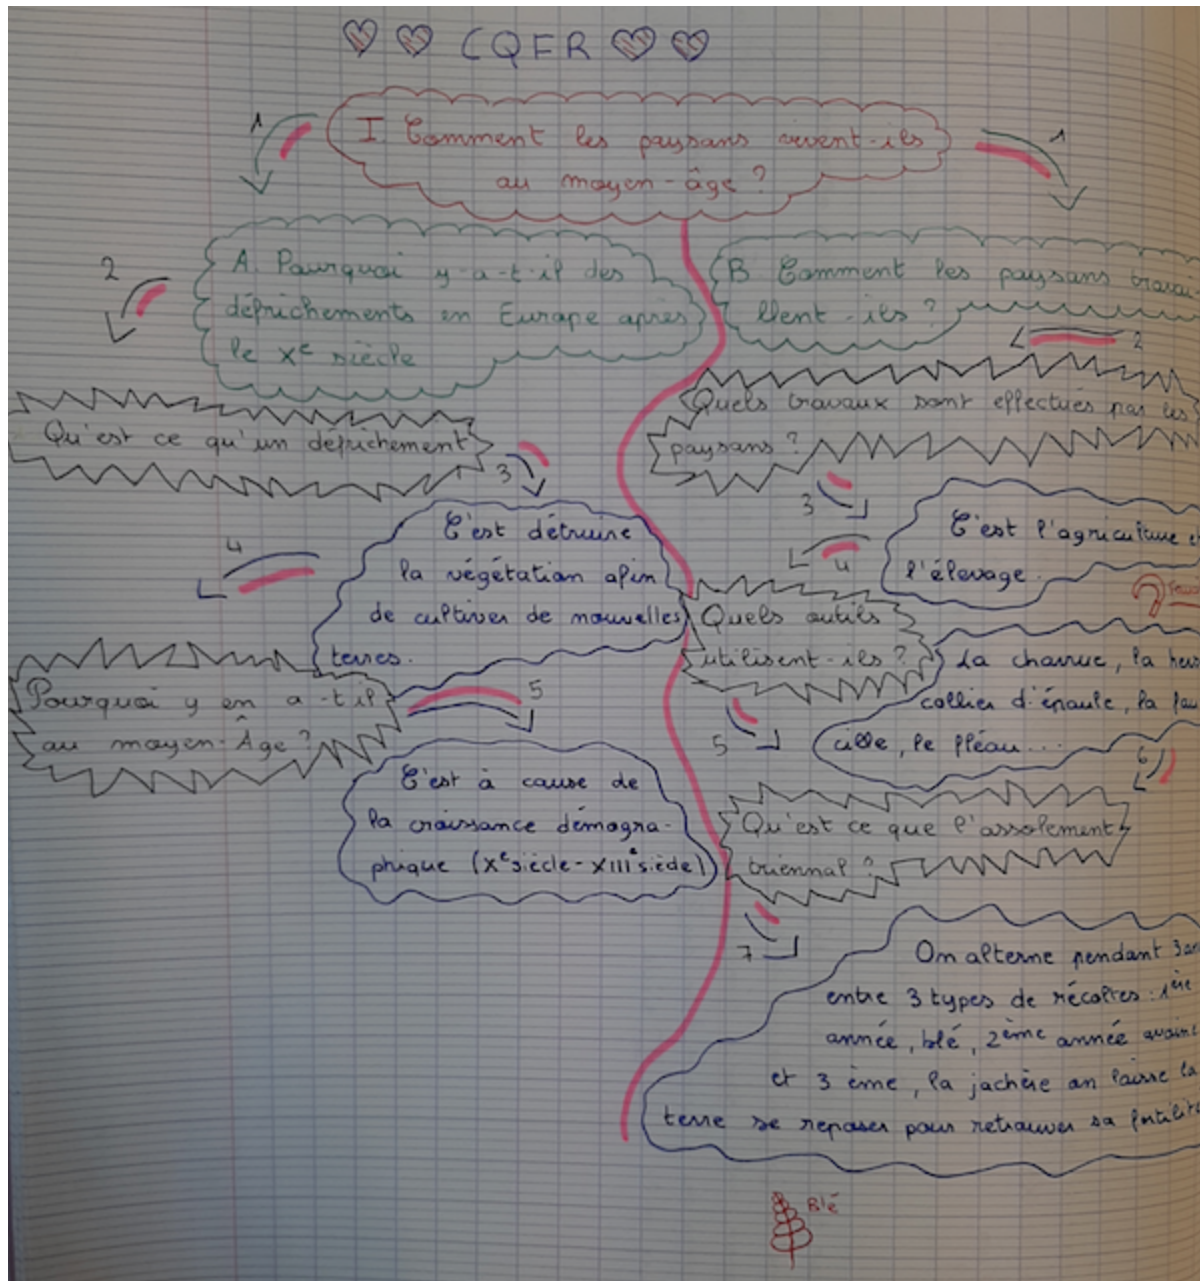 CQFR
I Comment les paysans vivent-ils
au moyen-âge ?
1
1
A. Pourquoi y-a-t-il des
défrichements en Europe après
le Xe siècle
2
Qu'est ce qu'un défrichement
3
C'est détruire
la végétation afin
de cultiver de nouvelles
terres.
4
Pourquoi y en a-t-il
au moyen-Âge ?
5
C'est à cause de
la croissance démogra-
phique (Xe siècle-XIIIe siècle)
B Comment les paysans travai-
llent-ils ?
2
Quels travaux sont effectués par les
paysans ?
3
C'est l'agriculture
l'élevage.
4
Quels outils
utilisent-ils ?
5
La charrue, la
collier d'épaule, la
cille, le fléau...
6
Qu'est ce que l'assolement
triennal ?
7
On alterne pendant 3
entre 3 types de récoltes : 1ère
année, blé, 2ème année
et 3 ème, la jachère on laisse la
terre se reposer pour retrouver sa
Blé